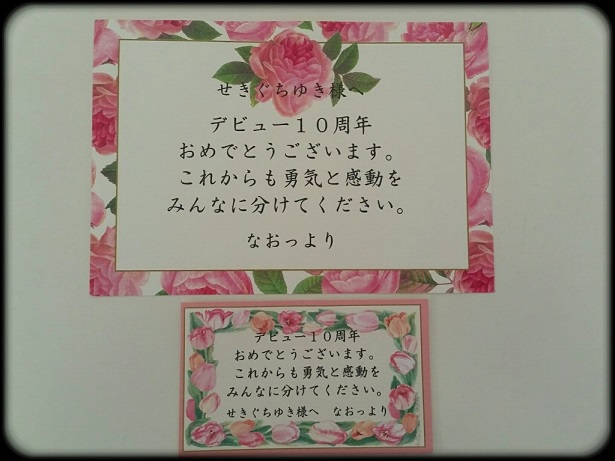 せきぐちゆき様へ
デビュー１０周年
おめでとうございます。
これからも勇気と感動を
みんなに分けてください。
なおっより
デビュー１０周年
おめでとうございます。
これからも勇気と感動を
みんなに分けてください。
せきぐちゆき様へ　なおっより